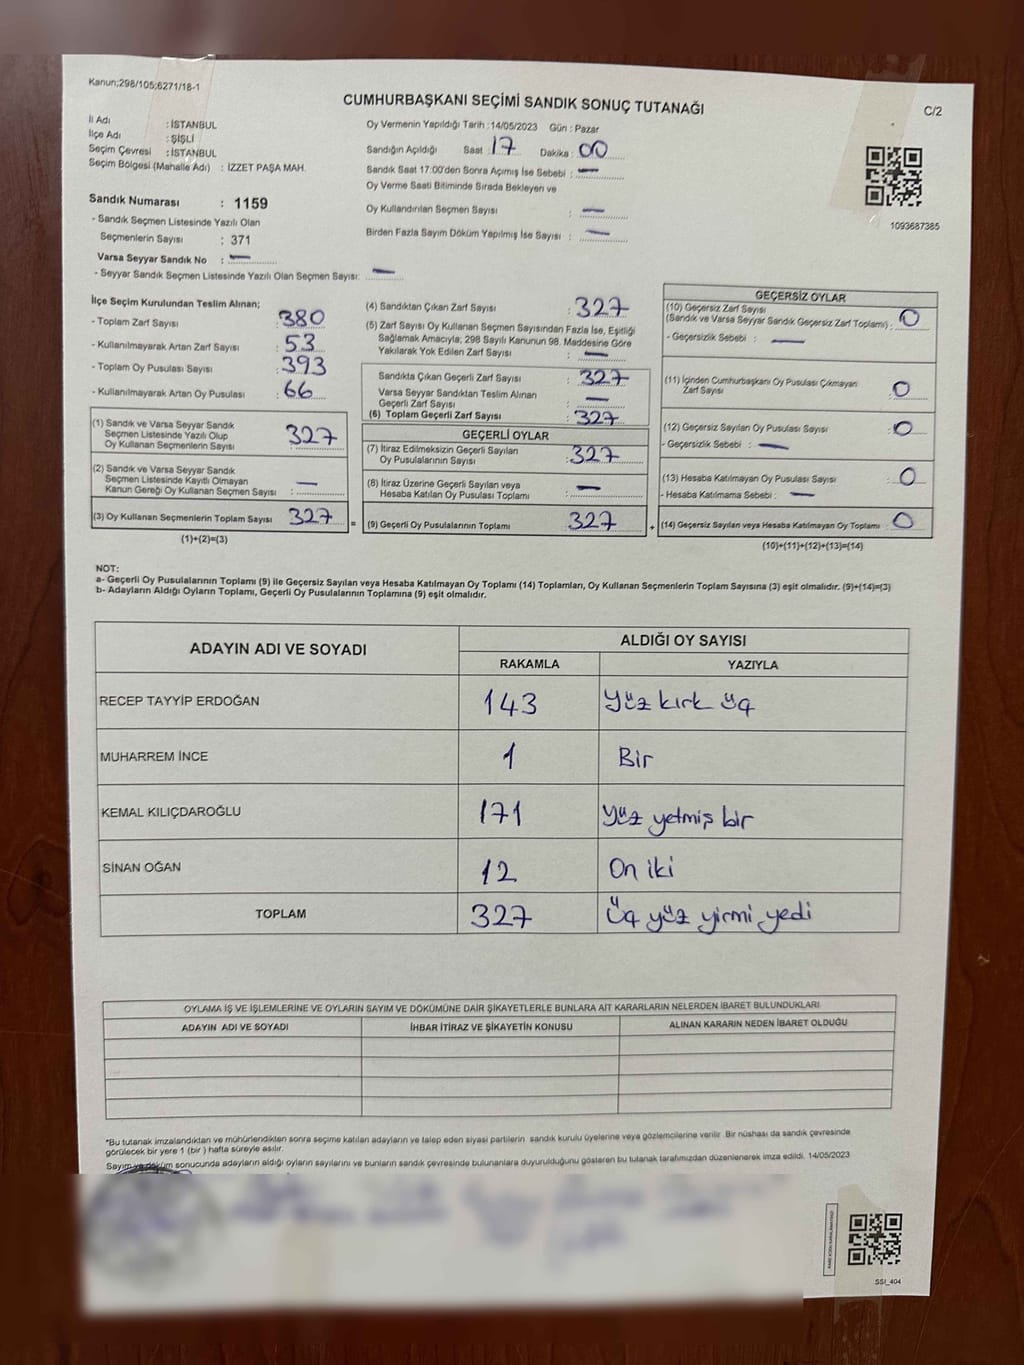 Kanun;298/105;6271/18-1
CUMHURBAŞKANI SEÇİMİ SANDIK SONUÇ TUTANAĞI
C/2
İl Adı : İSTANBUL
İlçe Adı : ŞİŞLİ
Seçim Çevresi : İSTANBUL
Seçim Bölgesi (Mahalle Adı) : İZZET PAŞA MAH.
Sandık Numarası : 1159
- Sandık Seçmen Listesinde Yazılı Olan
Seçmenlerin Sayısı : 371
Varsa Seyyar Sandık No : —
- Seyyar Sandık Seçmen Listesinde Yazılı Olan Seçmen Sayısı: —
Oy Vermenin Yapıldığı Tarih :14/05/2023 Gün : Pazar
Sandığın Açıldığı Saat : 17 Dakika : 00
Sandık Saat 17:00'den Sonra Açımış İse Sebebi : —
Oy Verme Saati Bitiminde Sırada Bekleyen ve
Oy Kullandırılan Seçmen Sayısı : —
Birden Fazla Sayım Döküm Yapılmış İse Sayısı : —
1093687385
İlçe Seçim Kurulundan Teslim Alınan;
- Toplam Zarf Sayısı : 380
- Kullanılmayarak Artan Zarf Sayısı : 53
- Toplam Oy Pusulası Sayısı : 393
- Kullanılmayarak Artan Oy Pusulası : 66
(1) Sandık ve Varsa Seyyar Sandık
Seçmen Listesinde Yazılı Olup
Oy Kullanan Seçmenlerin Sayısı : 327
(2) Sandık ve Varsa Seyyar Sandık
Seçmen Listesinde Kayıtlı Olmayan
Kanun Gereği Oy Kullanan Seçmen Sayısı : —
(3) Oy Kullanan Seçmenlerin Toplam Sayısı : 327 =
(1)+(2)=(3)
(4) Sandıktan Çıkan Zarf Sayısı : 327
(5) Zarf Sayısı Oy Kullanan Seçmen Sayısından Fazla İse, Eşitliği
Sağlamak Amacıyla; 298 Sayılı Kanunun 98. Maddesine Göre
Yakılarak Yok Edilen Zarf Sayısı : —
Sandıkta Çıkan Geçerli Zarf Sayısı : 327
Varsa Seyyar Sandıktan Teslim Alınan
Geçerli Zarf Sayısı : —
(6) Toplam Geçerli Zarf Sayısı : 327
GEÇERLİ OYLAR
(7) İtiraz Edilmeksizin Geçerli Sayılan
Oy Pusulalarının Sayısı : 327
(8) İtiraz Üzerine Geçerli Sayılan veya
Hesaba Katılan Oy Pusulası Toplamı : —
(9) Geçerli Oy Pusulalarının Toplamı : 327 +
GEÇERSİZ OYLAR
(10) Geçersiz Zarf Sayısı
(Sandık ve Varsa Seyyar Sandık Geçersiz Zarf Toplamı) : 0
- Geçersizlik Sebebi : —
(11) İçinden Cumhurbaşkanı Oy Pusulası Çıkmayan
Zarf Sayısı : 0
(12) Geçersiz Sayılan Oy Pusulası Sayısı : 0
- Geçersizlik Sebebi : —
(13) Hesaba Katılmayan Oy Pusulası Sayısı : 0
- Hesaba Katılmama Sebebi : —
(14) Geçersiz Sayılan veya Hesaba Katılmayan Oy Toplamı : 0
(10)+(11)+(12)+(13)=(14)
NOT:
a- Geçerli Oy Pusulalarının Toplamı (9) ile Geçersiz Sayılan veya Hesaba Katılmayan Oy Toplamı (14) Toplamları, Oy Kullanan Seçmenlerin Toplam Sayısına (3) eşit olmalıdır. (9)+(14)=(3)
b- Adayların Aldığı Oyların Toplamı, Geçerli Oy Pusulalarının Toplamına (9) eşit olmalıdır.
ADAYIN ADI VE SOYADI ALDIĞI OY SAYISI
RAKAMLA YAZIYLA
RECEP TAYYİP ERDOĞAN 143 Yüz kırk üç
MUHARREM İNCE 1 Bir
KEMAL KILIÇDAROĞLU 171 Yüz yetmiş bir
SİNAN OĞAN 12 On iki
TOPLAM 327 Üç yüz yirmi yedi
OYLAMA İŞ VE İŞLEMLERİNE VE OYLARIN SAYIM VE DÖKÜMÜNE DAİR ŞİKAYETLERLE BUNLARA AİT KARARLARIN NELERDEN İBARET BULUNDUKLARI
ADAYIN ADI VE SOYADI İHBAR İTİRAZ VE ŞİKAYETİN KONUSU ALINAN KARARIN NEDEN İBARET OLDUĞU
*Bu tutanak imzalandıktan ve mühürlendikten sonra seçime katılan adayların ve talep eden siyasi partilerin sandık kurulu üyelerine veya gözlemcilerine verilir. Bir nüshası da sandık çevresinde
görülecek bir yere 1 (bir ) hafta süreyle asılır.
Sayım ve döküm sonucunda adayların aldığı oyların sayılarını ve bunların sandık çevresinde bulunanlara duyurulduğunu gösteren bu tutanak tarafımızdan düzenlenerek imza edildi. 14/05/2023
SSI_404